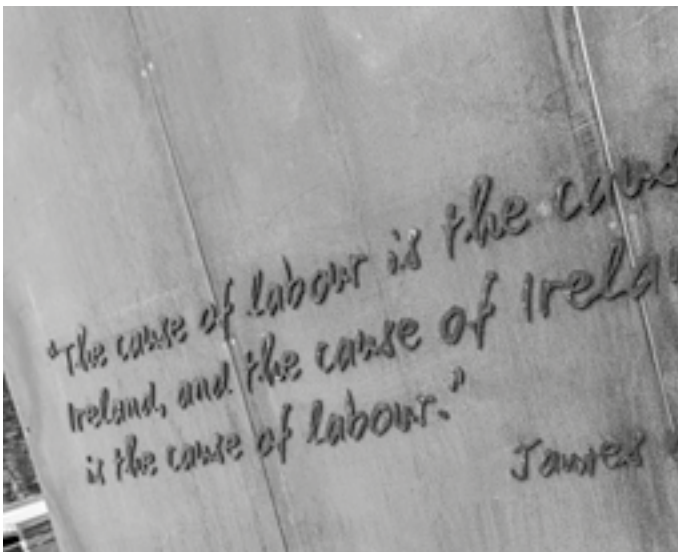 "The cause of labour is the caus
Ireland, and the cause of Irela
is the cause of labour."
James